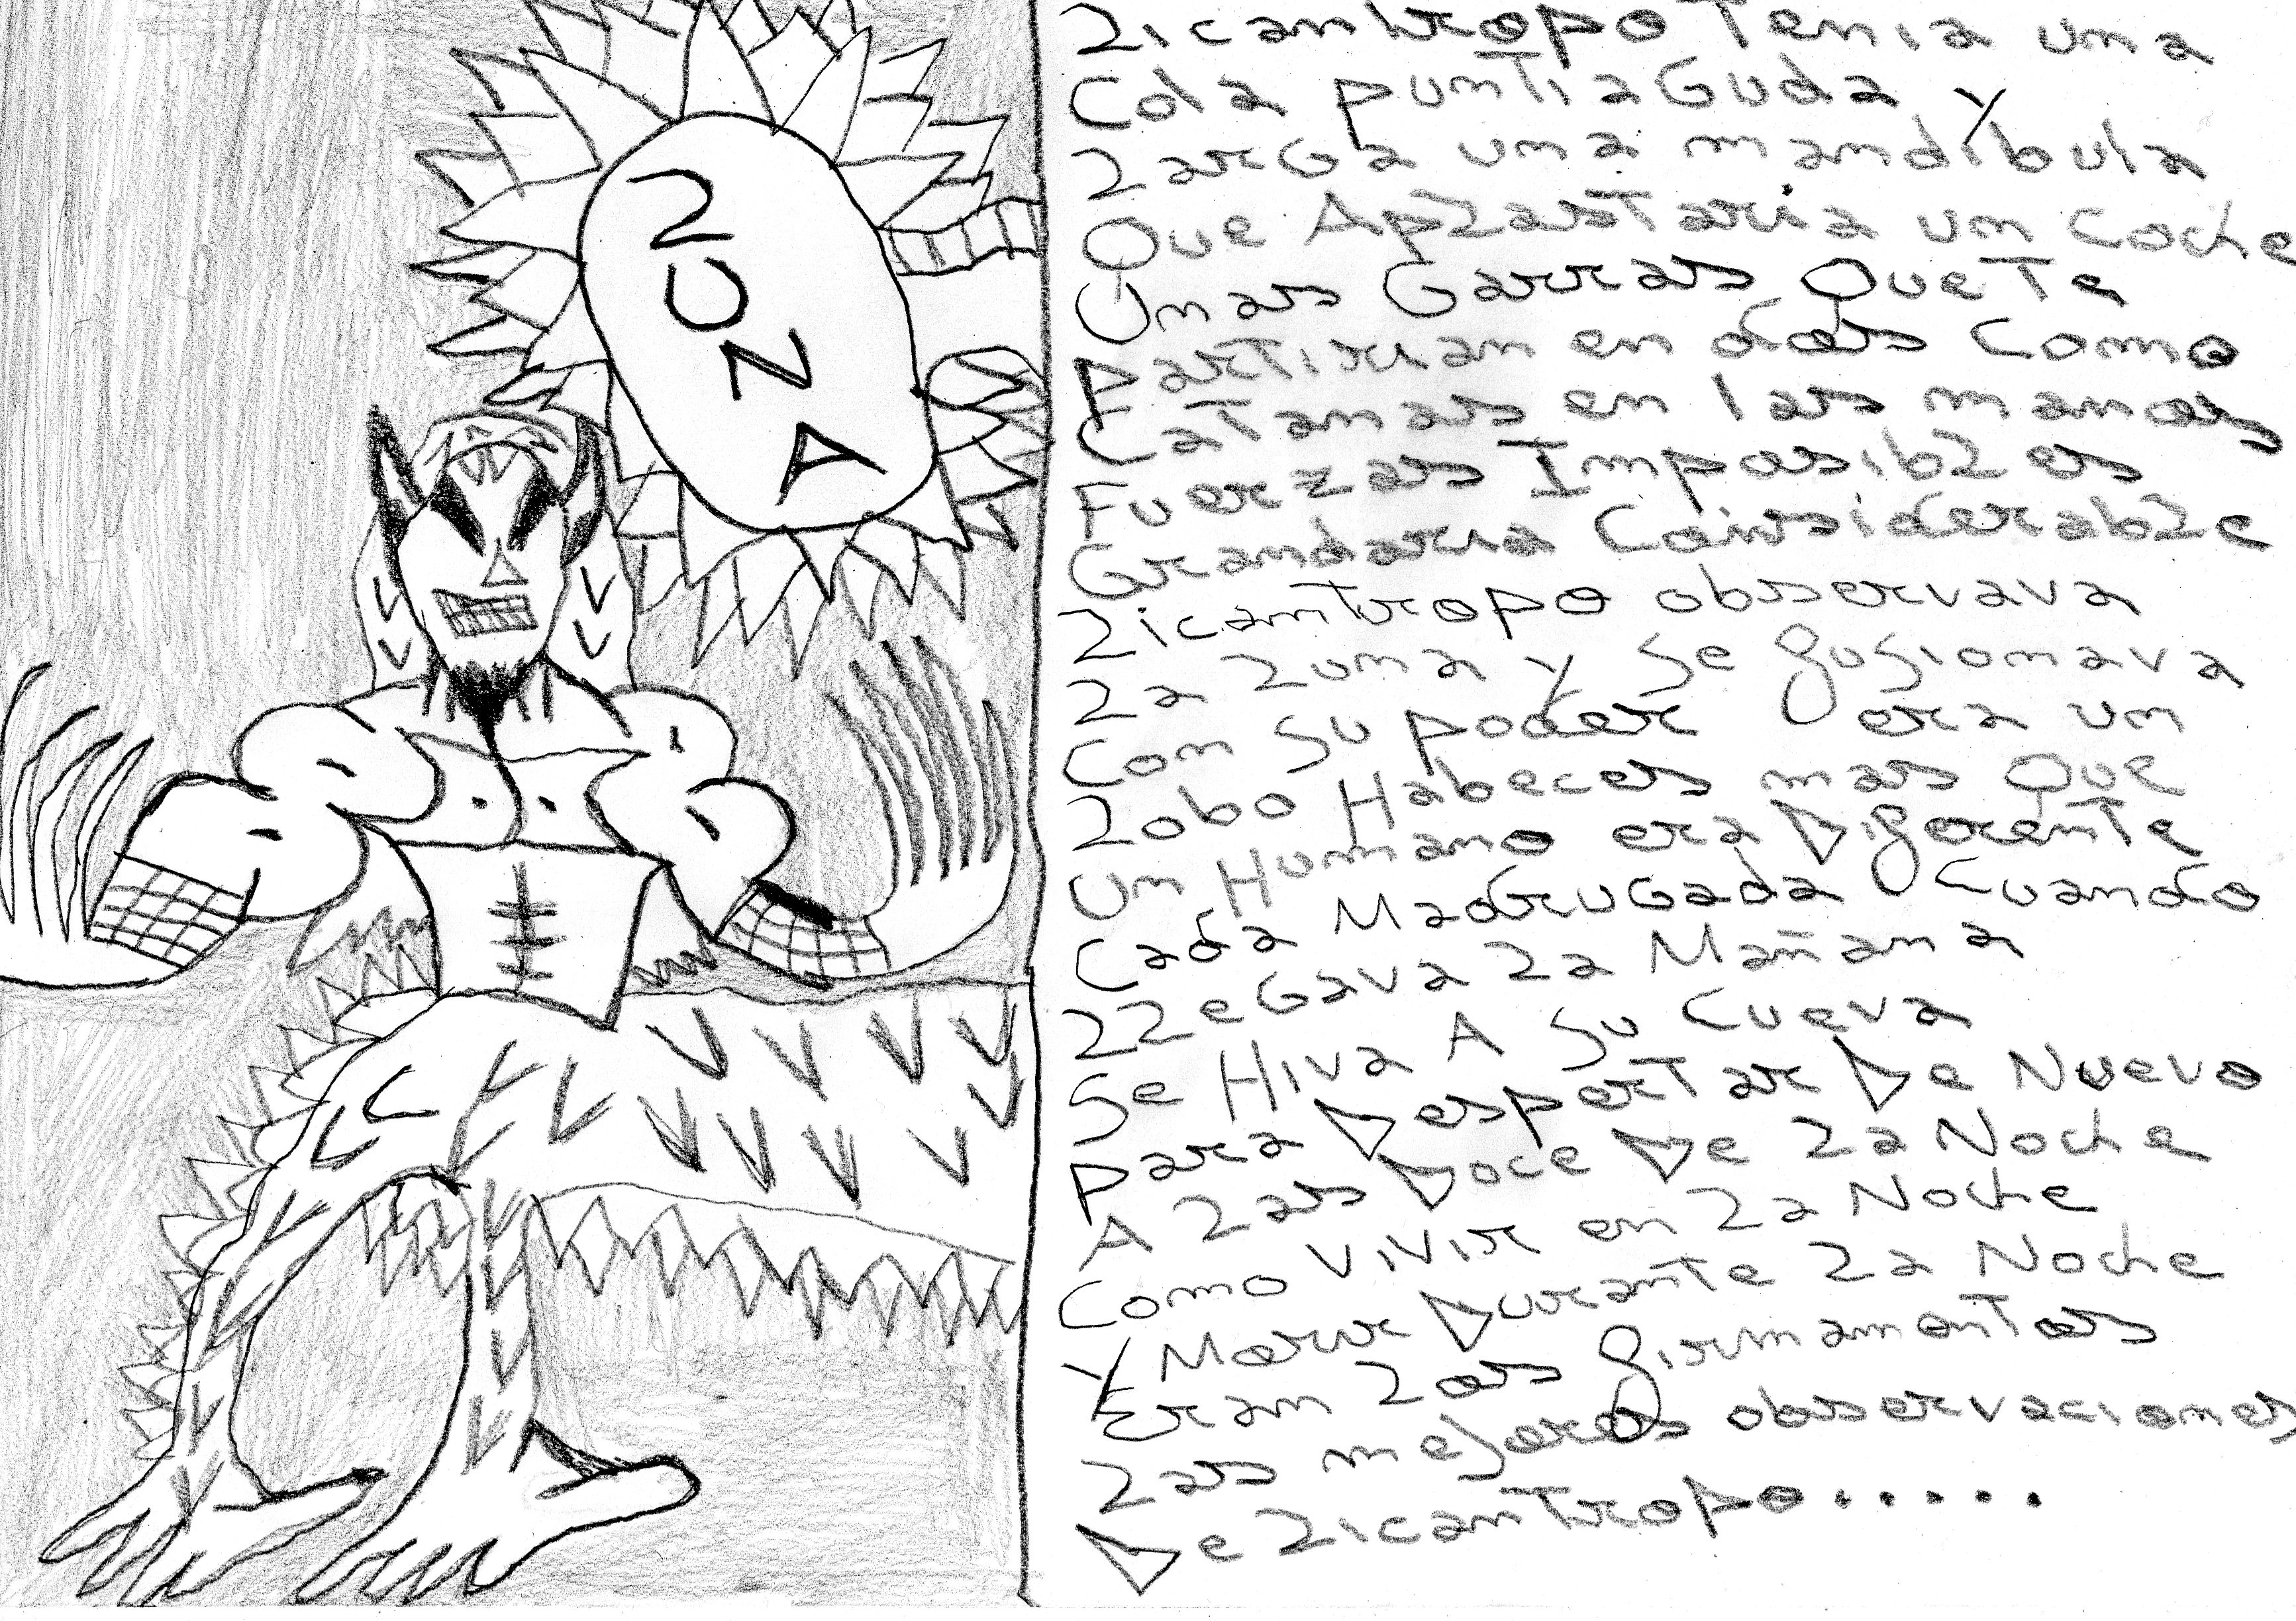 LUNA
Licantropo Tenia una
Cola puntiaGuda y
LarGa una mandibula
Que ApLastaria un Coche
Unas Garras Que Te
partirian en dos Como
CaTanas en las manos
Fuerzas ImposibLes
Grandaria ConsiderabLe
Licantropo observava
La Luna y Se fusionava
Con Su poder era un
Lobo Habeces mas Que
un Humano era Diferente
Cada MadruGada Cuando
LLeGava La Mañana
Se Hiva A Su Cueva
para Despertar De Nuevo
A Las Doce De La Noche
Como Vivir en La Noche
Y Morir Durante La Noche
Eran Los firmamentos
Las mejores observaciones
De Licantropo.....